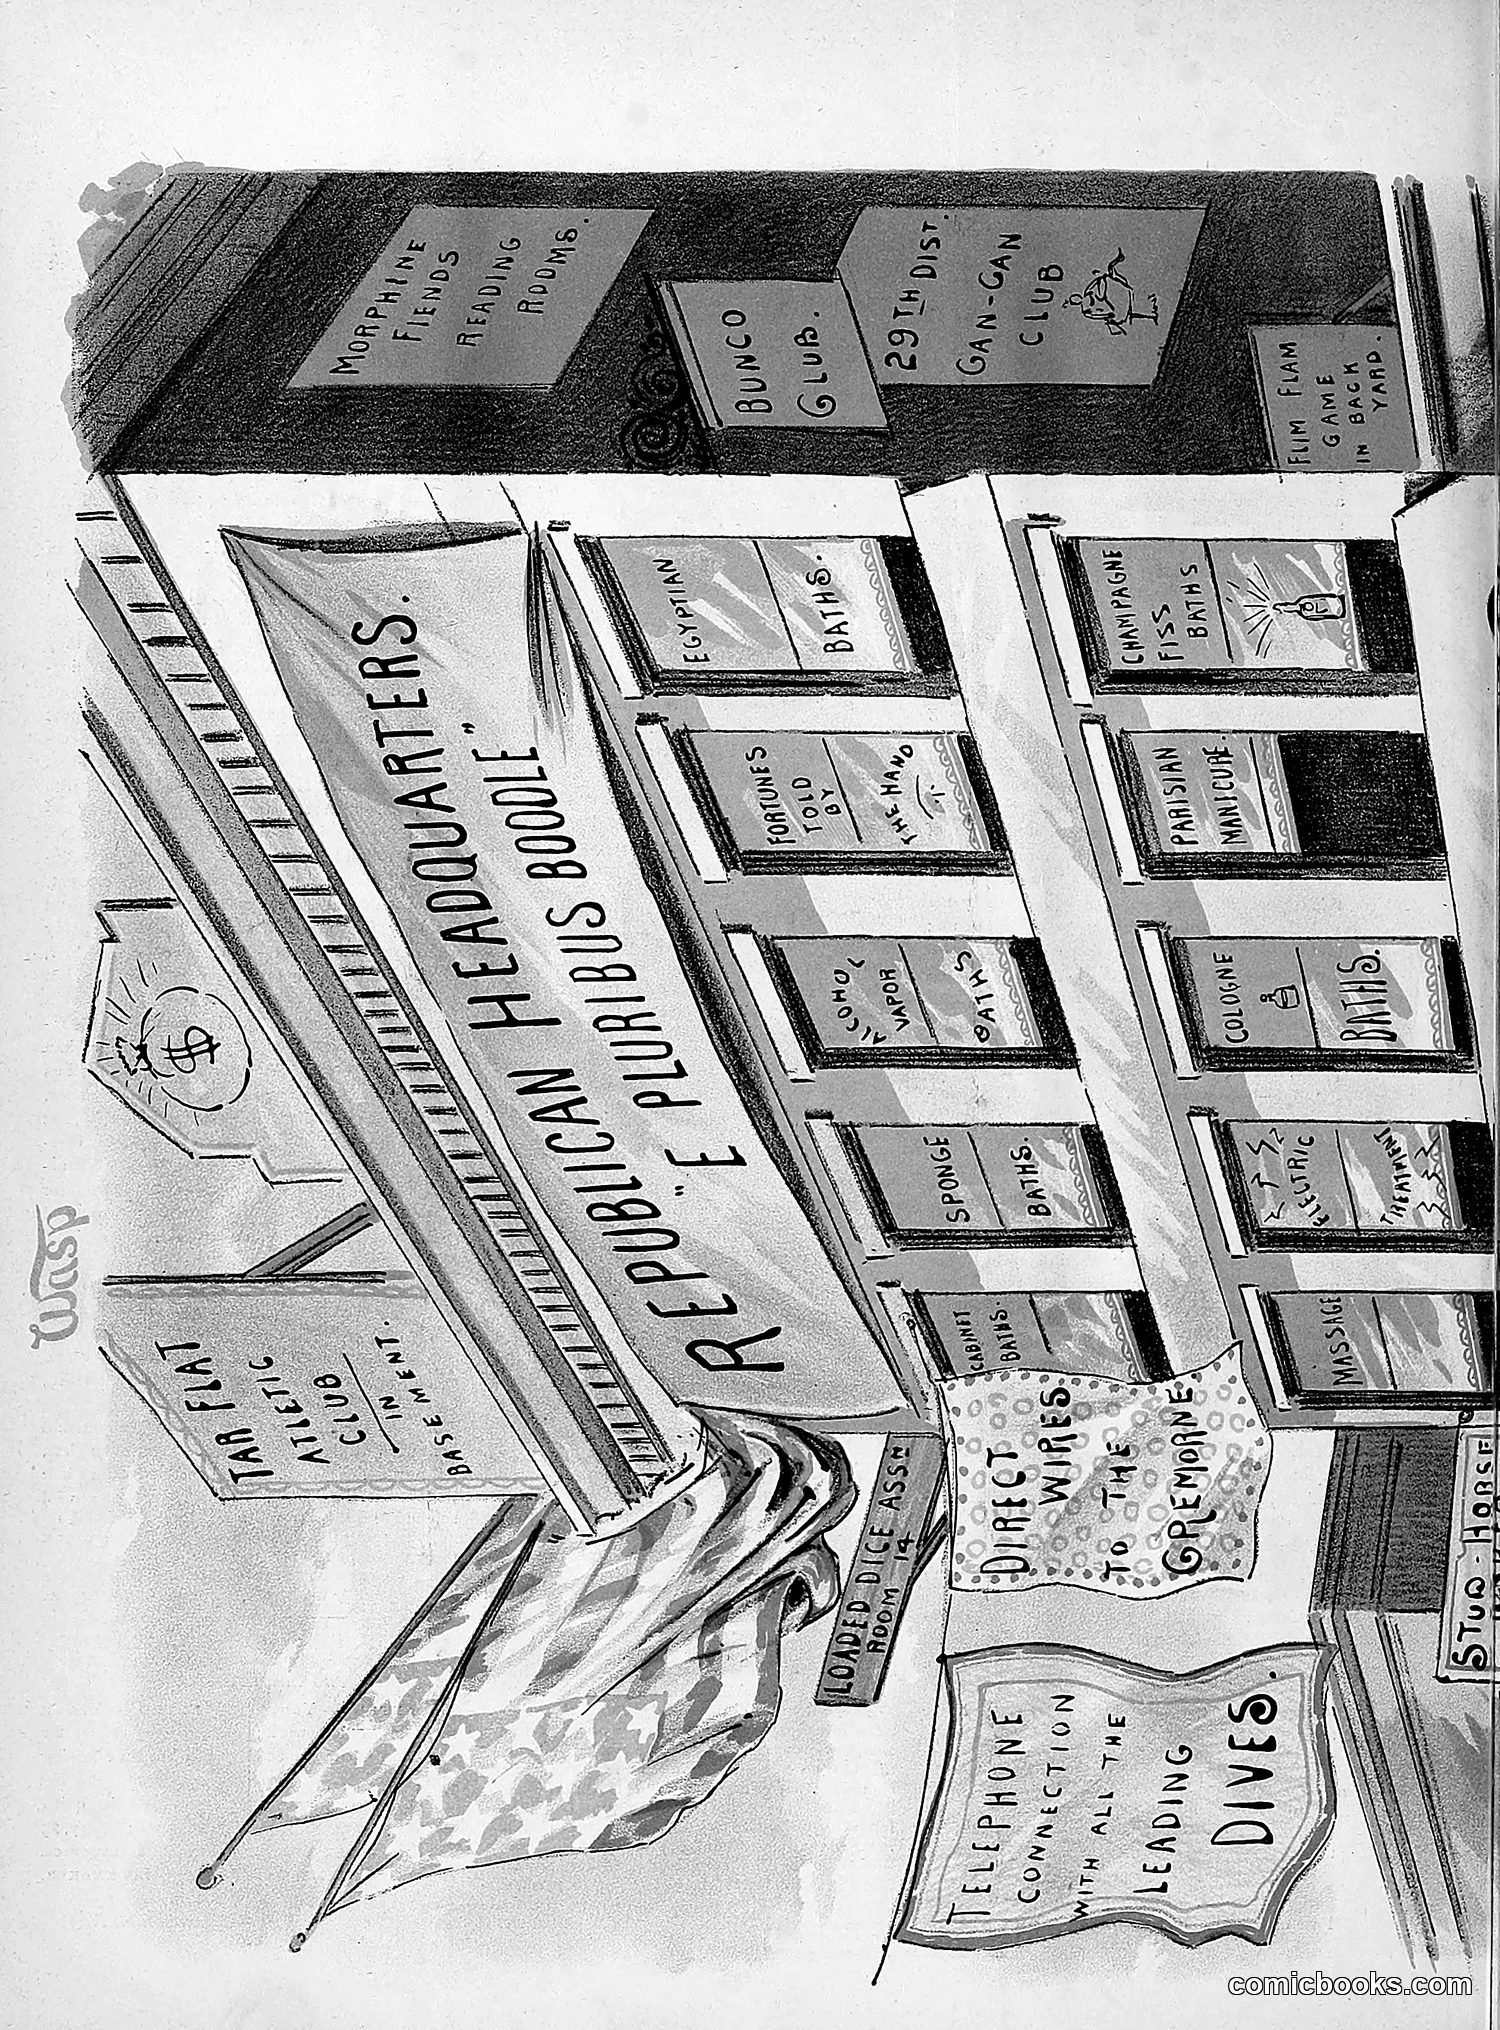 Wasp
TAR FLAT
ATLETIC
CLUB
IN
BASEMENT.
$
REPUBLICAN HEADQUARTERS.
"E PLURIBUS BOODLE"
MORPHINE
FIENDS
READING
ROOMS.
BUNCO
CLUB.
29TH DIST.
CAN-CAN
CLUB
FLIM FLAM
GAME
IN BACK
YARD.
LOADED DICE ASSN
ROOM 14
CABINET
BATHS.
SPONGE
BATHS.
ALCOHOL
VAPOR
BATHS
FORTUNES
TOLD
BY
THE HAND
EGYPTIAN
BATHS.
DIRECT
WIRES
TO THE
CREMORNE
TELEPHONE
CONNECTION
WITH ALL THE
LEADING
DIVES.
MASSAGE
ELECTRIC
TREATMENT
COLOGNE
BATHS.
PARISIAN
MANICURE.
CHAMPAGNE
FISS
BATHS
STUD-HORSE
comicbooks.com